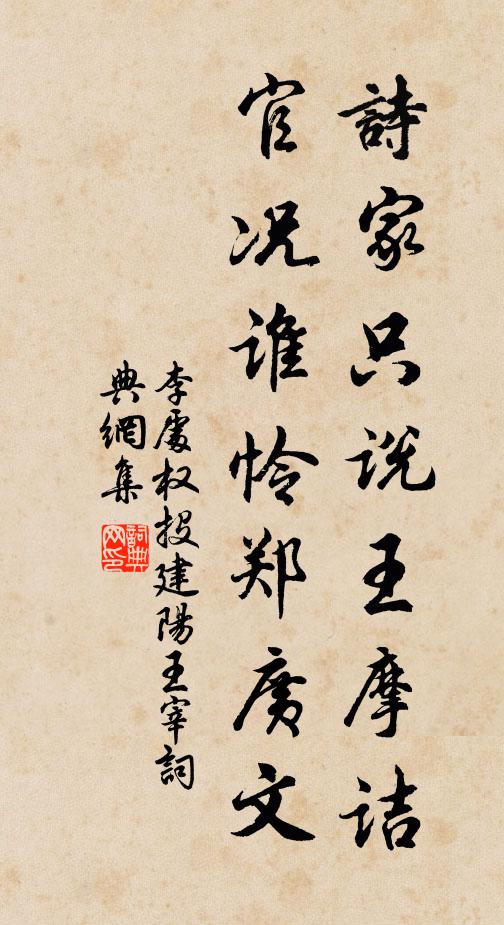 詩家只説王摩詰
官况誰怜郑廣文
李處权投建陽王宰詞
典網集
詞典
网印